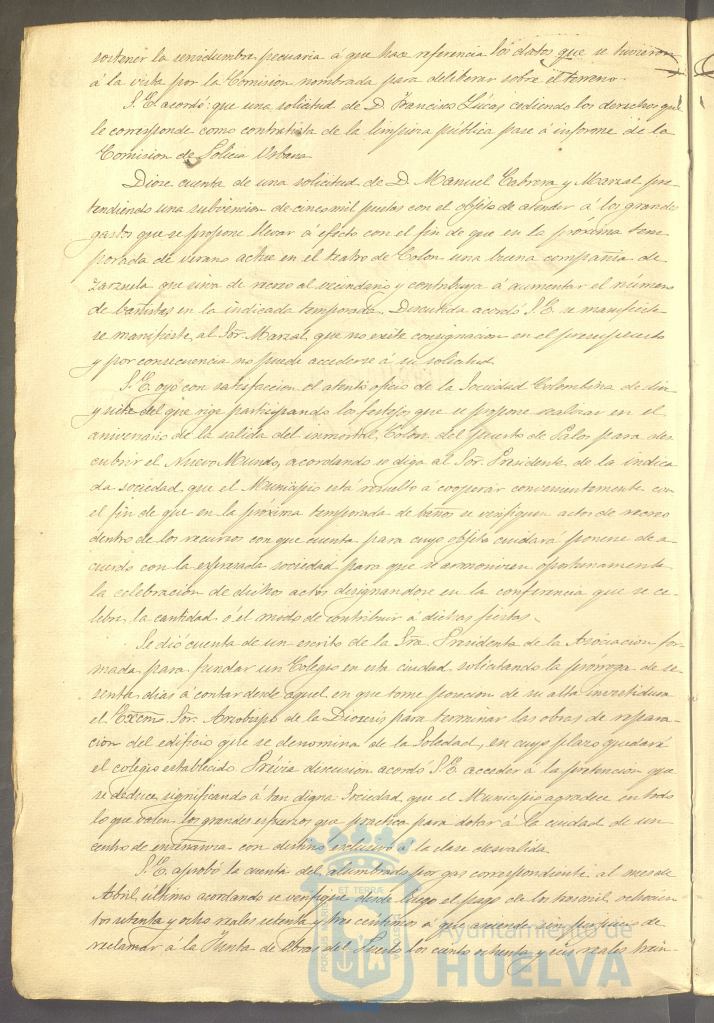 sostener la servidumbre pecuaria á que hace referencia los datos que se tuvieron
á la vista por la Comision nombrada para deliberar sobre el terreno.
S. E. acordó: que una solicitud de D. Francisco Lucas cediendo los derechos que
le corresponde como contratista de la limpieza pública pase á informe de la
Comision de Policia Urbana
Diose cuenta de una solicitud de D. Manuel Cabrera y Marzal pre-
tendiendo una subvencion de cinco mil pesetas con el objeto de atender á los grandes
gastos que se propone llevar á efecto con el fin de que en la próxima tem-
porada de verano actue en el teatro de Colon una buena compañia de
zarzuela que sirva de recreo al vecindario y contribuya á aumentar el número
de bañistas en la indicada temporada. Discutida acordó S. E. se manifieste
se manifieste al Sor. Marzal, que no existe consignacion en el presupuesto
y por consecuencia no puede accederse á su solicitud.
S. E. oyó con satisfaccion el atento oficio de la Sociedad Colombina de dia
y siete del que rige participando los festejos que se propone realizar en el
aniversario de la salida del inmortal Colon del puerto de Palos para des
cubrir el Nuevo Mundo, acordando se diga al Sor. Presidente de la indica
da sociedad que el Municipio está resuelto á cooperar convenientemente con
el fin de que en la próxima temporada de baños se verifiquen actos de recreo
dentro de los recursos con que cuenta para cuyo objeto cuidará ponerse de a-
cuerdo con la expresada sociedad para que se armonicen oportunamente
la celebracion de dichos actos designandose en la conferencia que se ce-
lebre la cantidad ó el modo de contribuir á dichas fiestas.
Se dió cuenta de un escrito de la Sra. Presidenta de la Asociacion for-
mada para fundar un Colegio en esta ciudad solicitando la prorroga de se-
senta dias á contar desde aquel en que tome posesion de su alta investidura
el Excmo. Sor. Arzobispo de la Diocesis para terminar las obras de repara-
cion del edificio que se denomina de la Soledad, en cuyo plazo quedará
el colegio establecido. Prévia discusion acordó S. E. acceder á la pretencion que
se deduce, significando á tan digna Sociedad que el Municipio agradece en todo
lo que valen los grandes esfuerzos que practica para dotar á la ciudad de un
centro de enseñanza con destino exclusivo á la clase desvalida.
S. E. aprobó la cuenta del alumbrado por gas correspondiente al mes de
Abril último acordando se verifique desde luego el pago de los tres mil ochocien
tos setenta y ocho reales setenta y tres centimos á que asciende sin perjuicio de
reclamar á la Junta de Obras del Puerto los ciento ochenta y seis reales trein-
ET TERRA
Ayuntamiento de
HUELVA